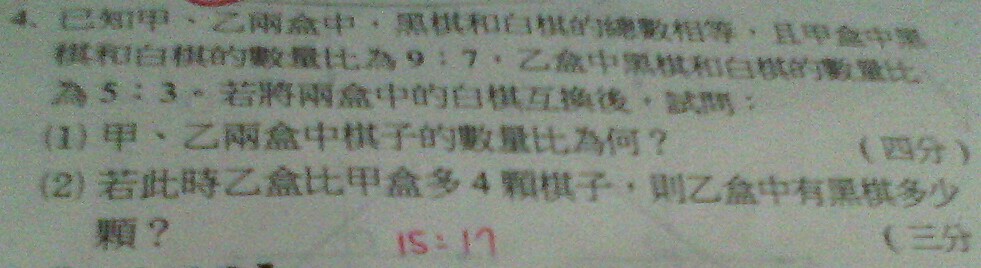 4. 已知甲、乙兩盒中，黑棋和白棋的總數相等，且甲盒中黑
棋和白棋的數量比為 9：7，乙盒中黑棋和白棋的數量比
為 5：3。若將兩盒中的白棋互換後，試問：
(1) 甲、乙兩盒中棋子的數量比為何？ (四分)
(2) 若此時乙盒比甲盒多 4 顆棋子，則乙盒中有黑棋多少
顆？ 15:17 (三分